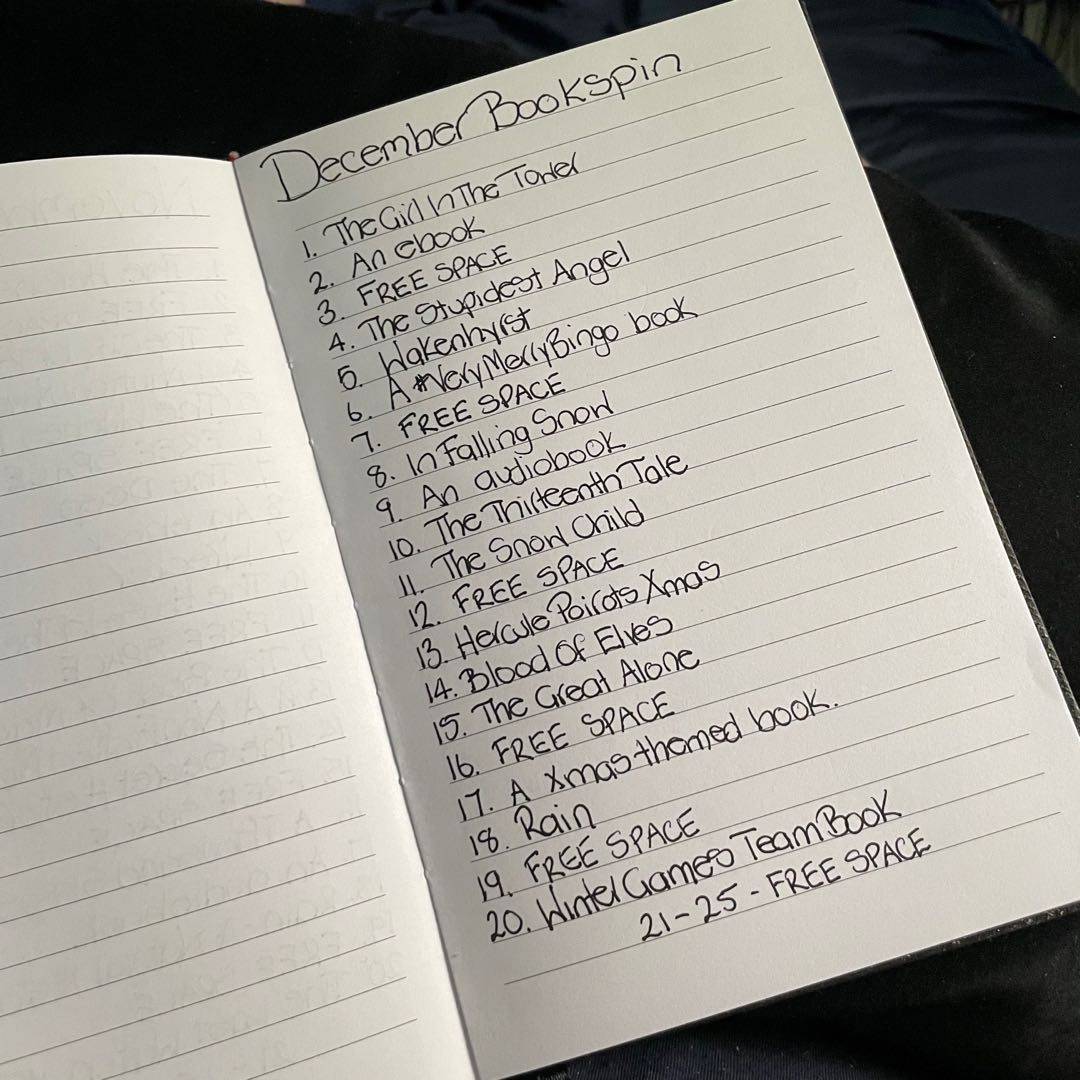 December Bookspin
1. The Girl In The Tower
2. An ebook
3. FREE SPACE
4. The Stupidest Angel
5. Wakenhyrst
6. A #VeryMerryBingo book
7. FREE SPACE
8. In Falling Snow
9. An audiobook
10. The Thirteenth Tale
11. The Snow Child
12. FREE SPACE
13. Hercule Poirots Xmas
14. Blood Of Elves
15. The Great Alone
16. FREE SPACE
17. A Xmas themed book.
18. Rain
19. FREE SPACE
20. Winter Games Team Book
21-25 - FREE SPACE